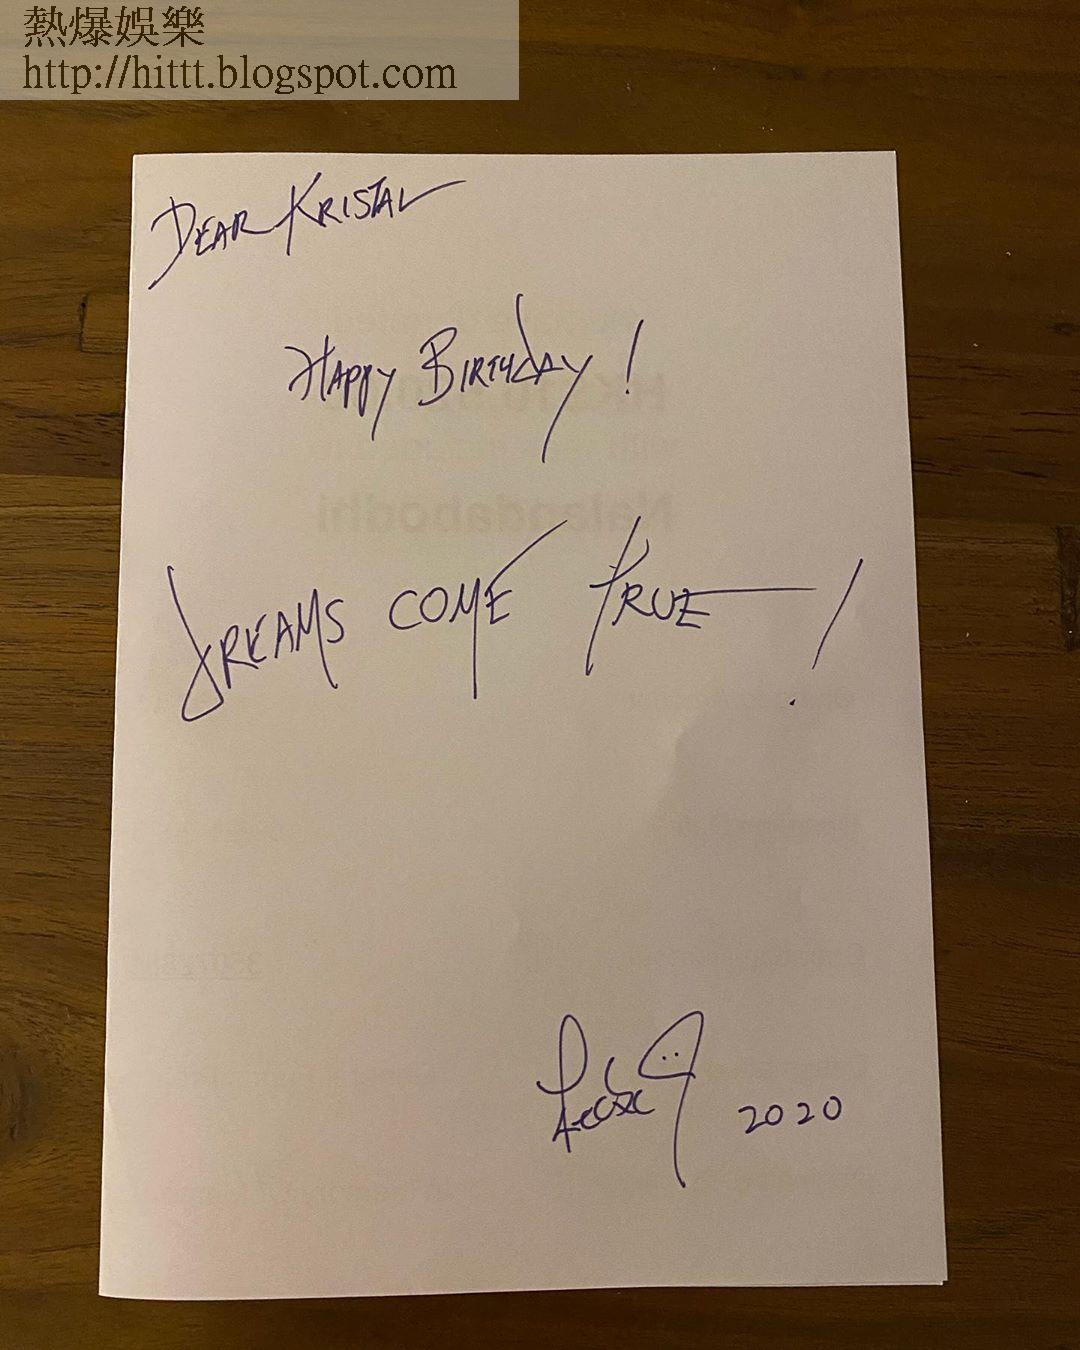 熱爆娛樂
http://hittt.blogspot.com
DEAR KRISTAL
HAPPY BIRTHDAY !
DREAMS COME TRUE !
2020
Nalandabodhi